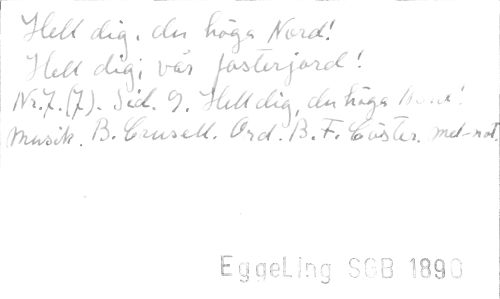 Hell dig, du höga Nord!
Hell dig, vår fosterjord!
Nr. 7. (7). Sid. 9. Hell dig, du höga Nord!
Musik. B. Crusell. Ord. B. F. Cöster. mel-not.
EggeLing SGB 1890